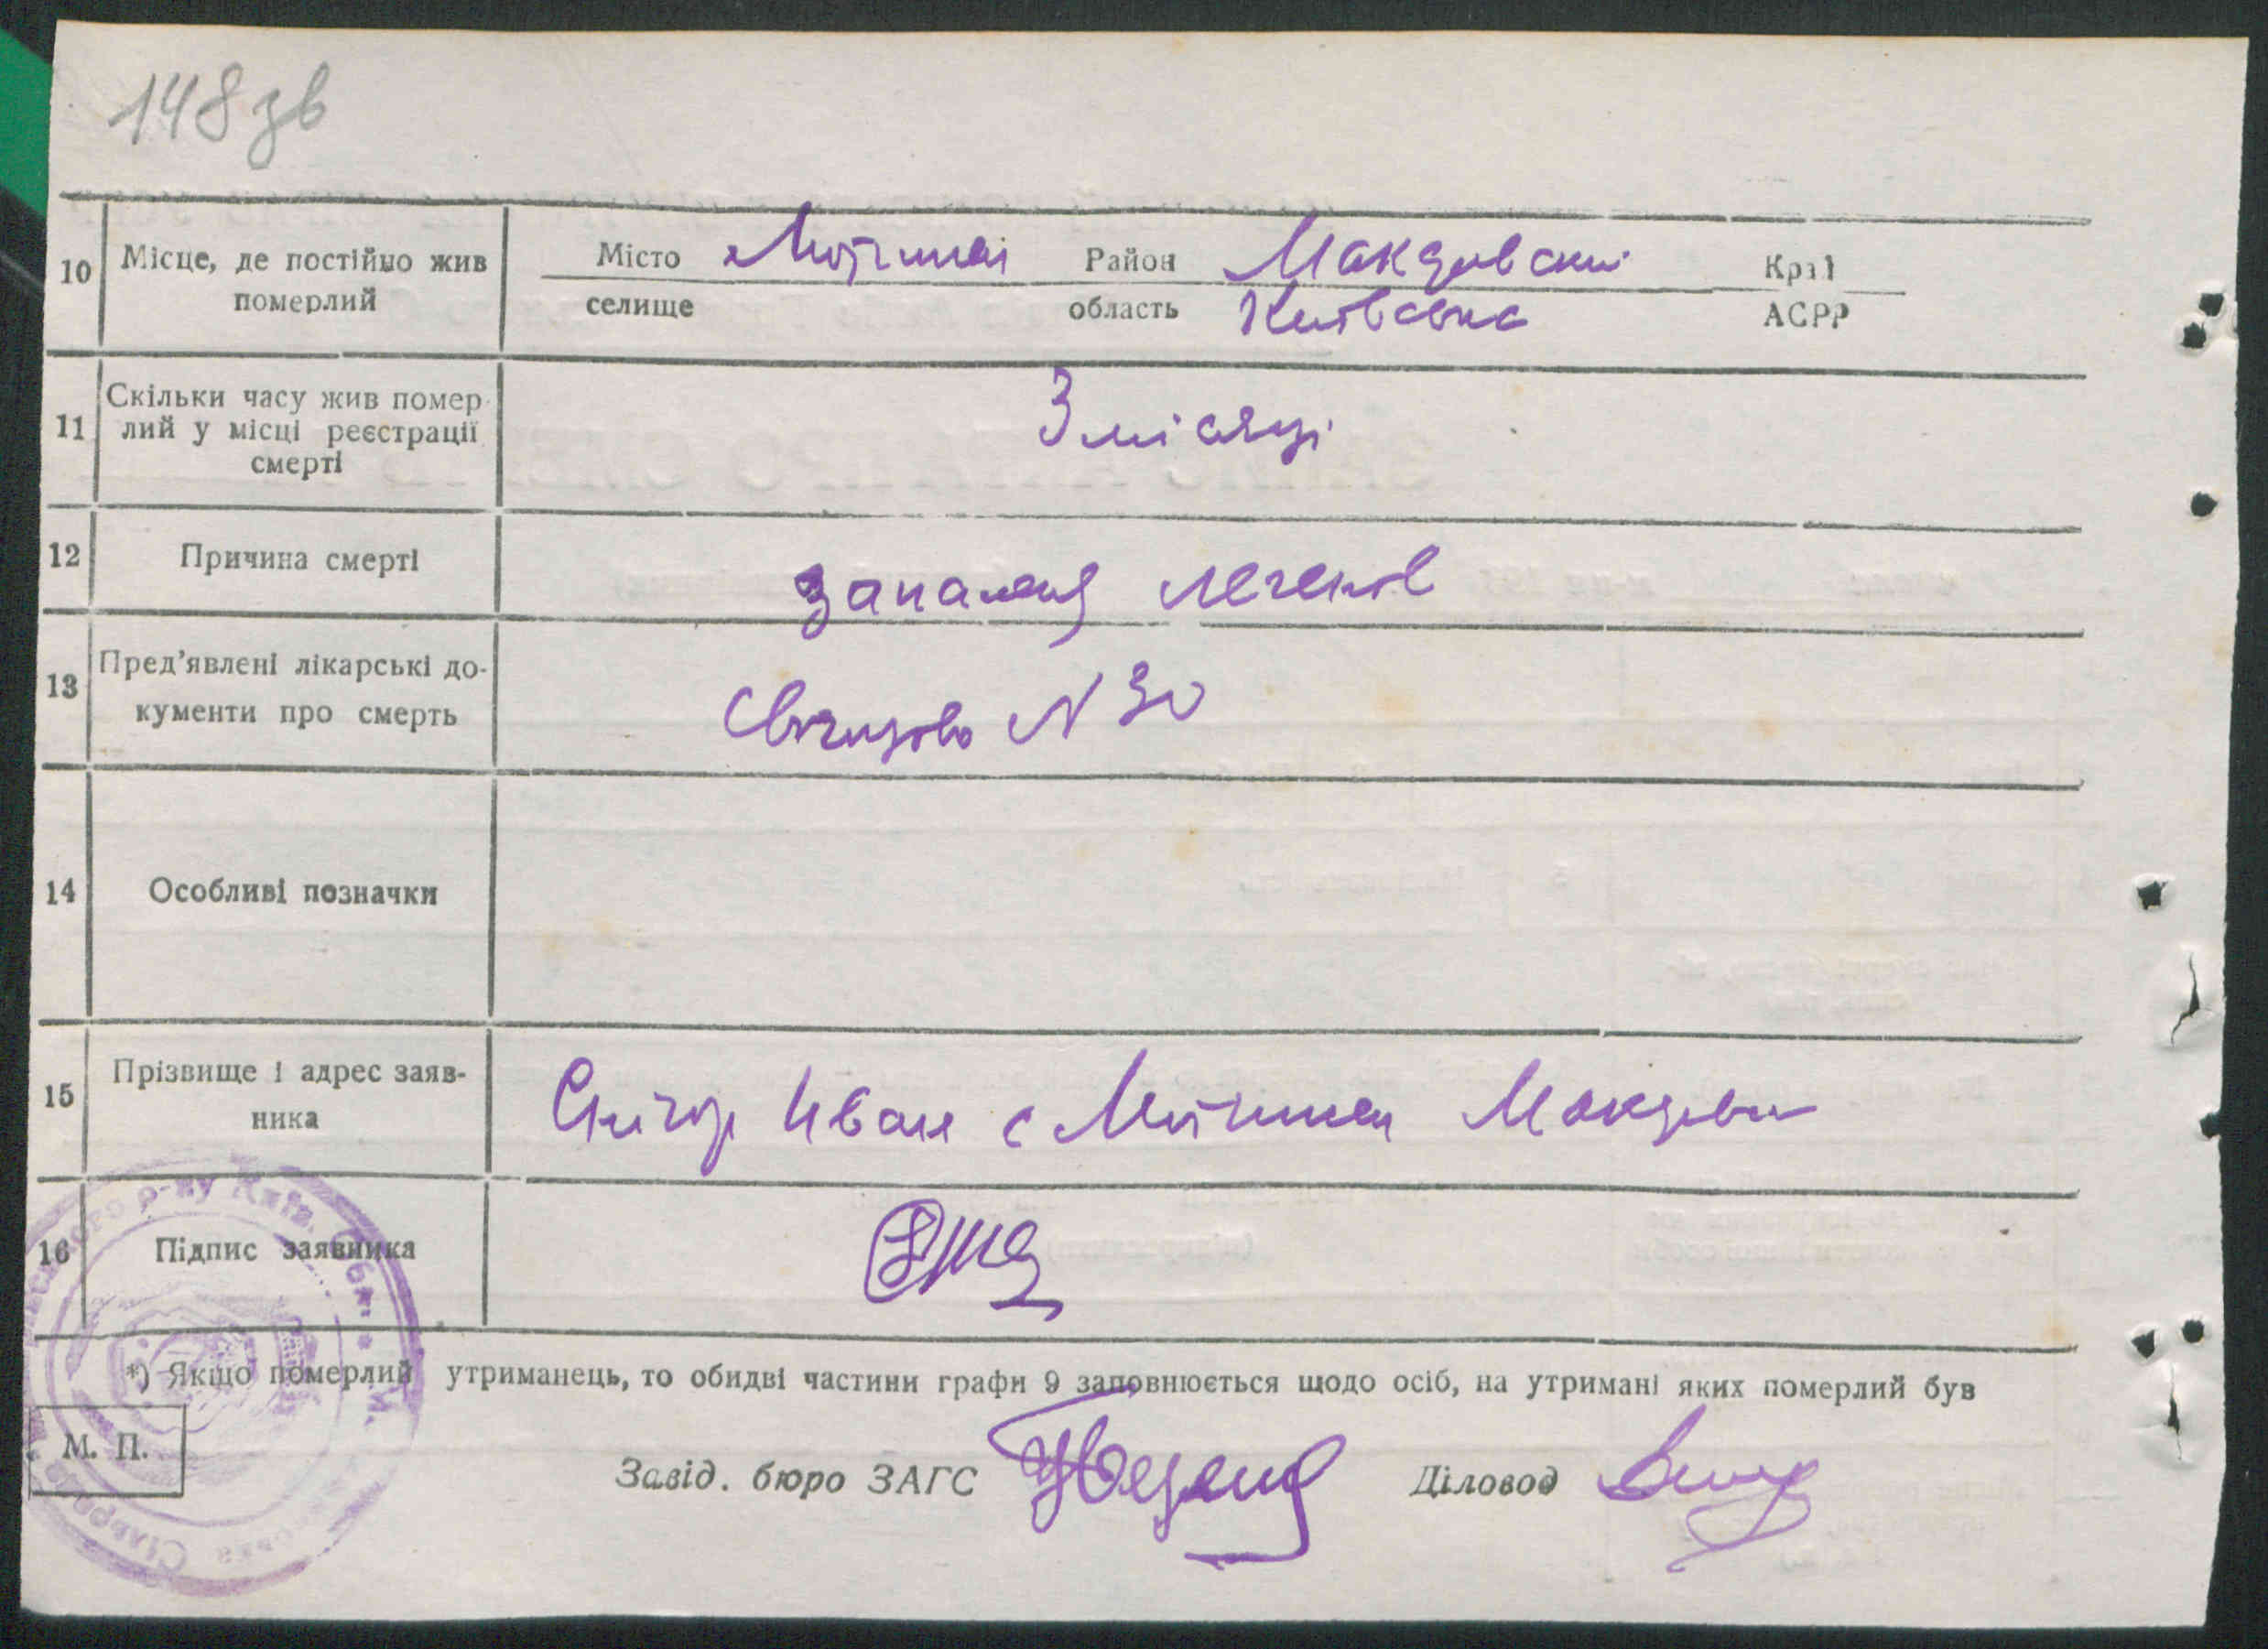 148 зв
10 Місце, де постійно жив Місто Мотижин Район Макарівський Край
померлий селище область Київська АСРР
11 Скільки часу жив помер-
лий у місці реєстрації 3 місяці
смерті
12 Причина смерті запаленя легенів
13 Пред'явлені лікарські до-
кументи про смерть N 30
14 Особливі позначки
15 Прізвище і адрес заяв-
ника Іван с Мотижин
16 Підпис заявника
*) Якщо померлий утриманець, то обидві частини графи 9 заповнюється щодо осіб, на утримані яких померлий був
М. П.
Завід. бюро ЗАГС Діловод
р-ну Київ. Обл.